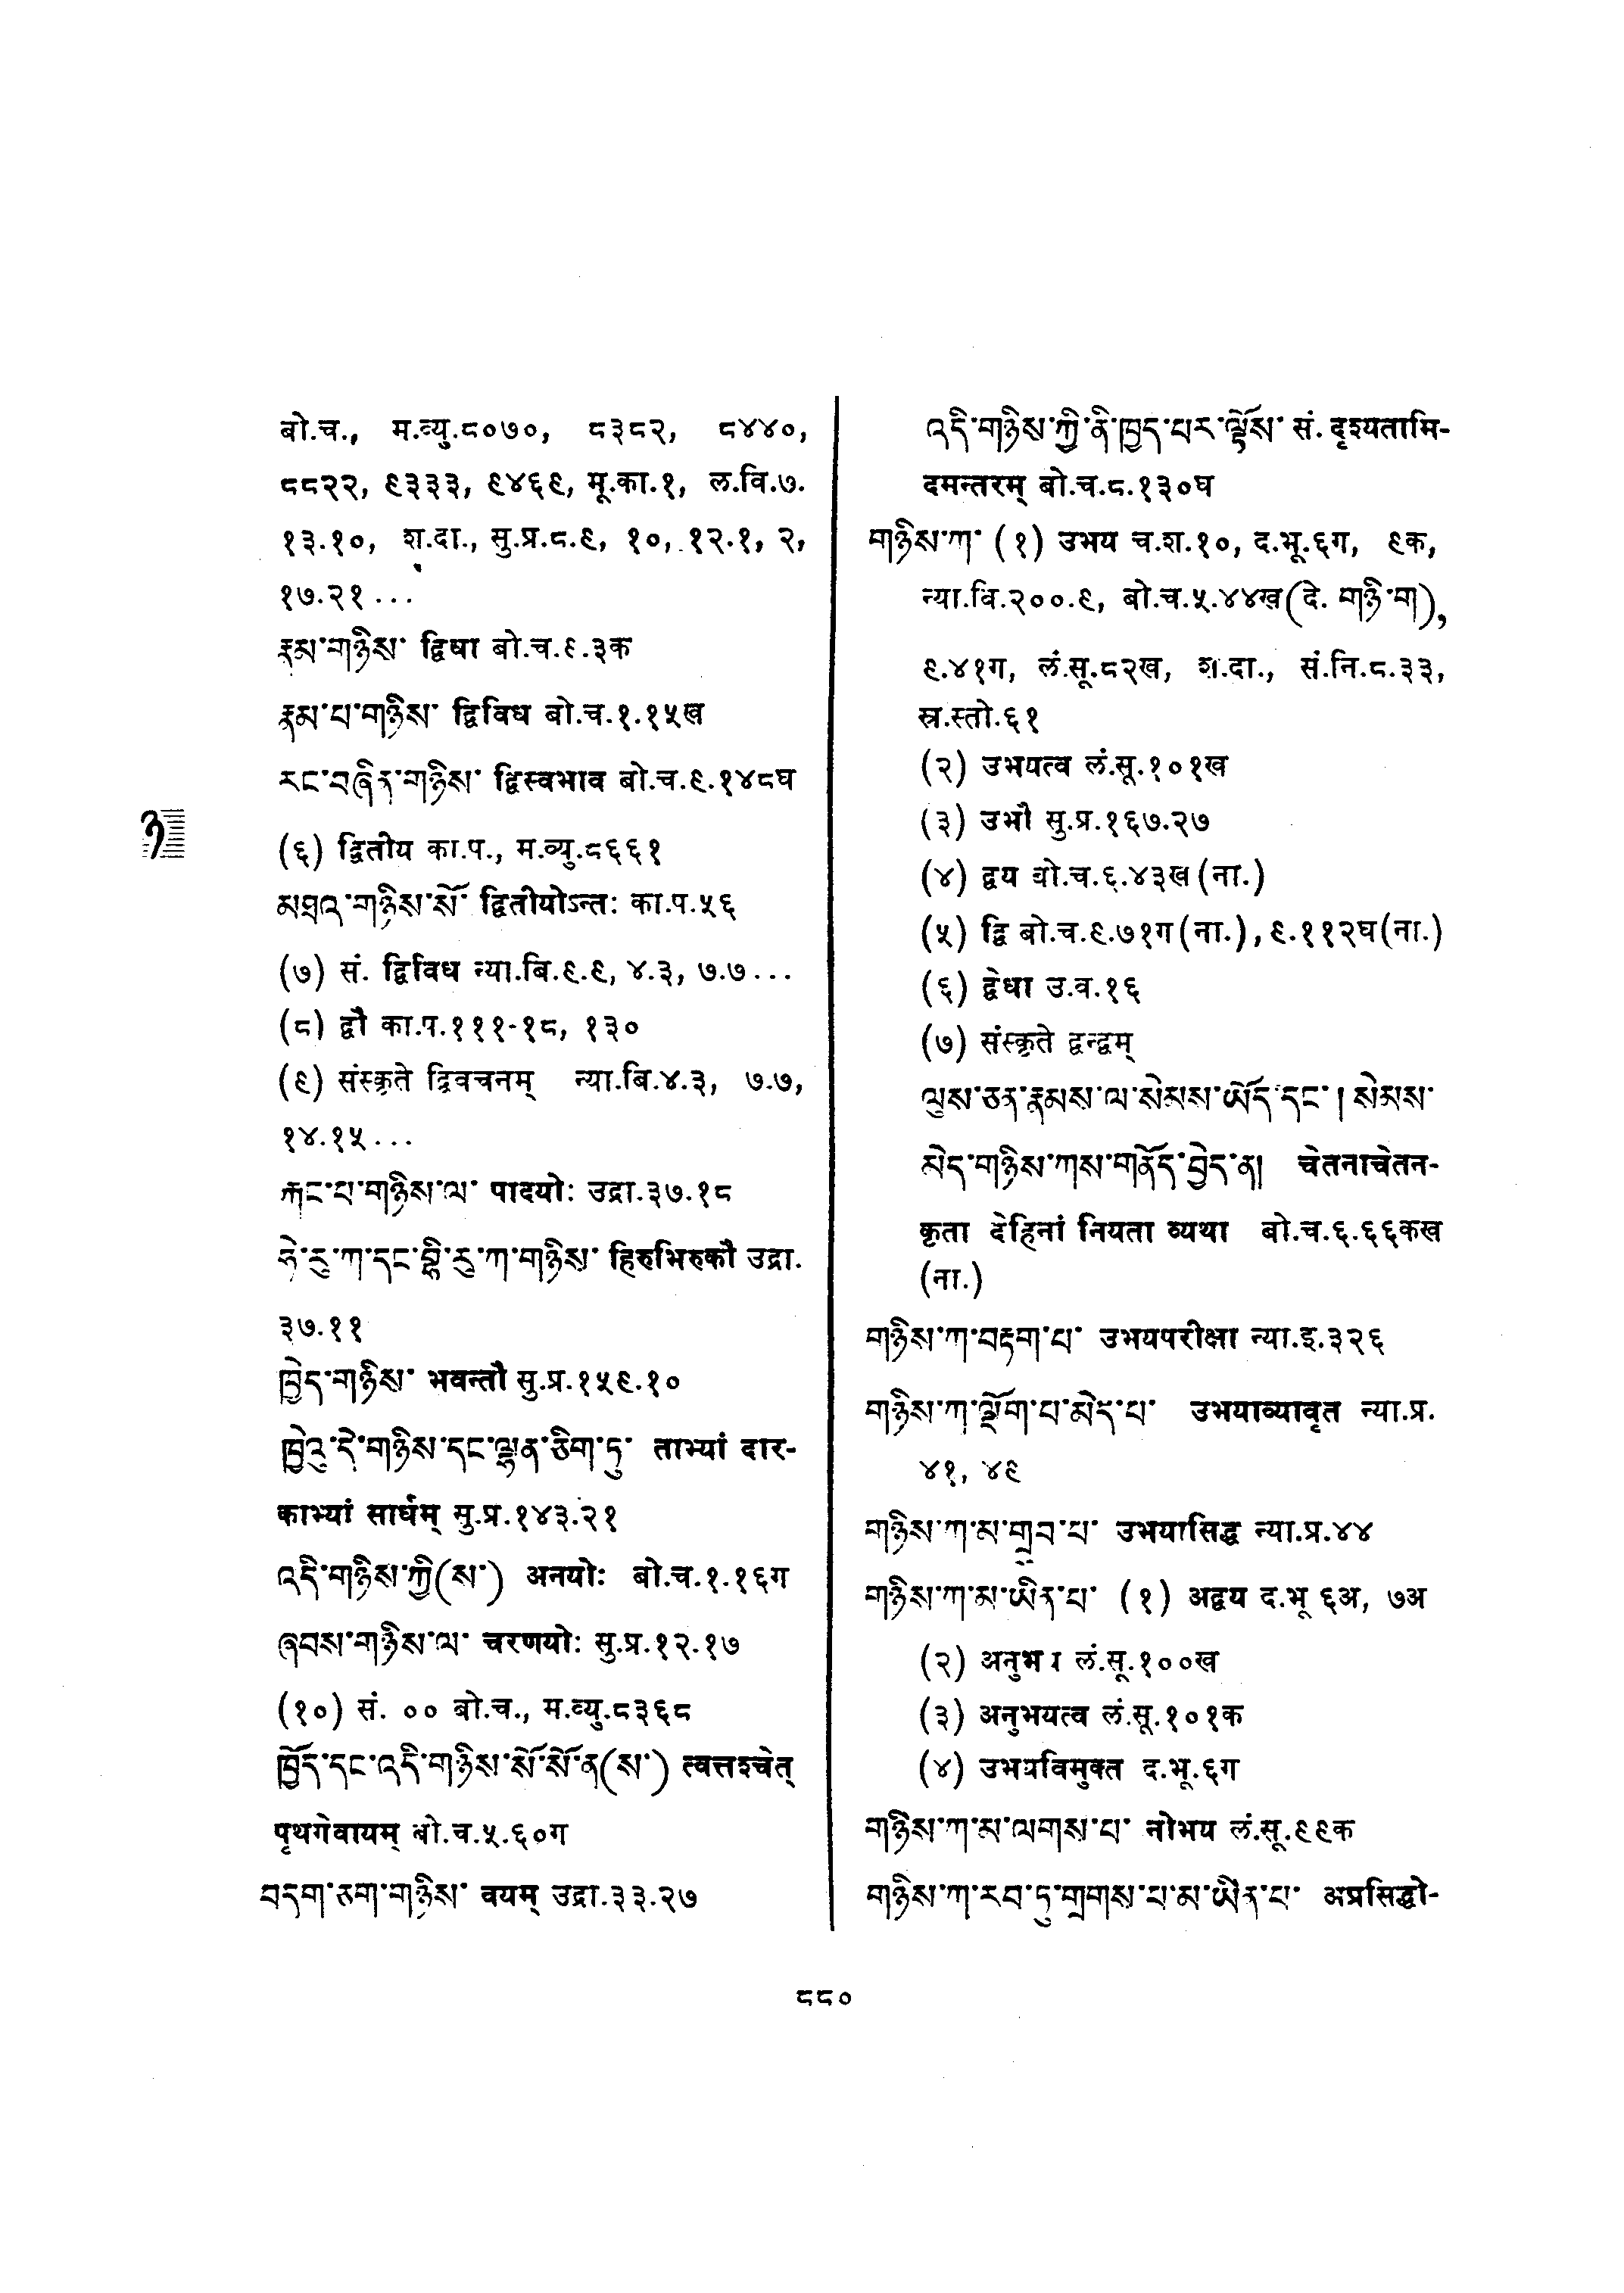 बो.च., म.व्यु.८०७०, ८३८२, ८४४०,
८८२२, ९३३३, ९४६९, मू.का.१, ल.वि.७.
१३.१०, श.दा., सु.प्र.८.९, १०, १२.१, २,
१७.२१...
རྣམ་གཉིས་ द्विधा बो.च.९.३क
རྣམ་པ་གཉིས་ द्विविध बो.च.१.१५ख
རང་བཞིན་གཉིས་ द्विस्वभाव बो.च.९.१४८घ
(६) द्वितीय का.प., म.व्यु.८६६१
མཐའ་གཉིས་སོ་ द्वितीयोऽन्तः का.प.५६
(७) सं. द्विविध न्या.बि.९.९, ४.३, ७.७...
(८) द्वौ का.प.१११-१८, १३०
(९) संस्कृते द्विवचनम् न्या.बि.४.३, ७.७,
१४.१५...
རྐང་པ་གཉིས་ལ་ पादयोः उद्रा.३७.१८
ཧེ་རུ་ཀ་དང་བྷི་རུ་ཀ་གཉིས་ हिरुभिरुकौ उद्रा.
३७.११
ཁྱེད་གཉིས་ भवन्तौ सु.प्र.१५९.१०
ཁྱེའུ་དེ་གཉིས་དང་ལྷན་ཅིག་ཏུ་ ताभ्यां दार-
काभ्यां सार्धम् सु.प्र.१४३.२१
འདི་གཉིས་ཀྱི(ས་) अनयोः बो.च.१.१६ग
ཞབས་གཉིས་ལ་ चरणयोः सु.प्र.१२.१७
(१०) सं. ०० बो.च., म.व्यु.८३६८
ཁྱོད་དང་འདི་གཉིས་སོ་སོ་ན(ས་) त्वत्तश्चेत्
पृथगेवायम् बो.च.५.६०ग
བདག་ཅག་གཉིས་ वयम् उद्रा.३३.२७
འདི་གཉིས་ཀྱི་ནི་ཁྱད་པར་ལྟོས་ सं. दृश्यतामि-
दमन्तरम् बो.च.८.१३०घ
གཉིས་ཀ་ (१) उभय च.श.१०, द.भू.६ग, ९क,
न्या.वि.२००.९, बो.च.५.४४ख(दे. གཉི་ག),
९.४१ग, लं.सू.८२ख, श.दा., सं.नि.८.३३,
स्र.स्तो.६१
(२) उभयत्व लं.सू.१०१ख
(३) उभौ सु.प्र.१६७.२७
(४) द्वय बो.च.६.४३ख(ना.)
(५) द्वि बो.च.९.७१ग(ना.), ९.११२घ(ना.)
(६) द्वेधा उ.व.१६
(७) संस्कृते द्वन्द्वम्
ལུས་ཅན་རྣམས་ལ་སེམས་ཡོད་དང་། སེམས་
མེད་གཉིས་ཀས་གནོད་བྱེད་ན། चेतनाचेतन-
कृता देहिनां नियता व्यथा बो.च.६.६६कख
(ना.)
གཉིས་ཀ་བརྟག་པ་ उभयपरीक्षा न्या.इ.३२६
གཉིས་ཀ་ལྡོག་པ་མེད་པ་ उभयाव्यावृत न्या.प्र.
४१, ४९
གཉིས་ཀ་མ་གྲུབ་པ་ उभयासिद्ध न्या.प्र.४४
གཉིས་ཀ་མ་ཡིན་པ་ (१) अद्वय द.भू ६अ, ७अ
(२) लं.सू.१००ख
(३) अनुभयत्व लं.सू.१०१क
(४) उभयविमुक्त द.भू.६ग
གཉིས་ཀ་མ་ལགས་པ་ नोभय लं.सू.९९क
གཉིས་ཀ་རབ་ཏུ་གྲགས་པ་མ་ཡིན་པ་ अप्रसिद्धो-
ཉ
८८०